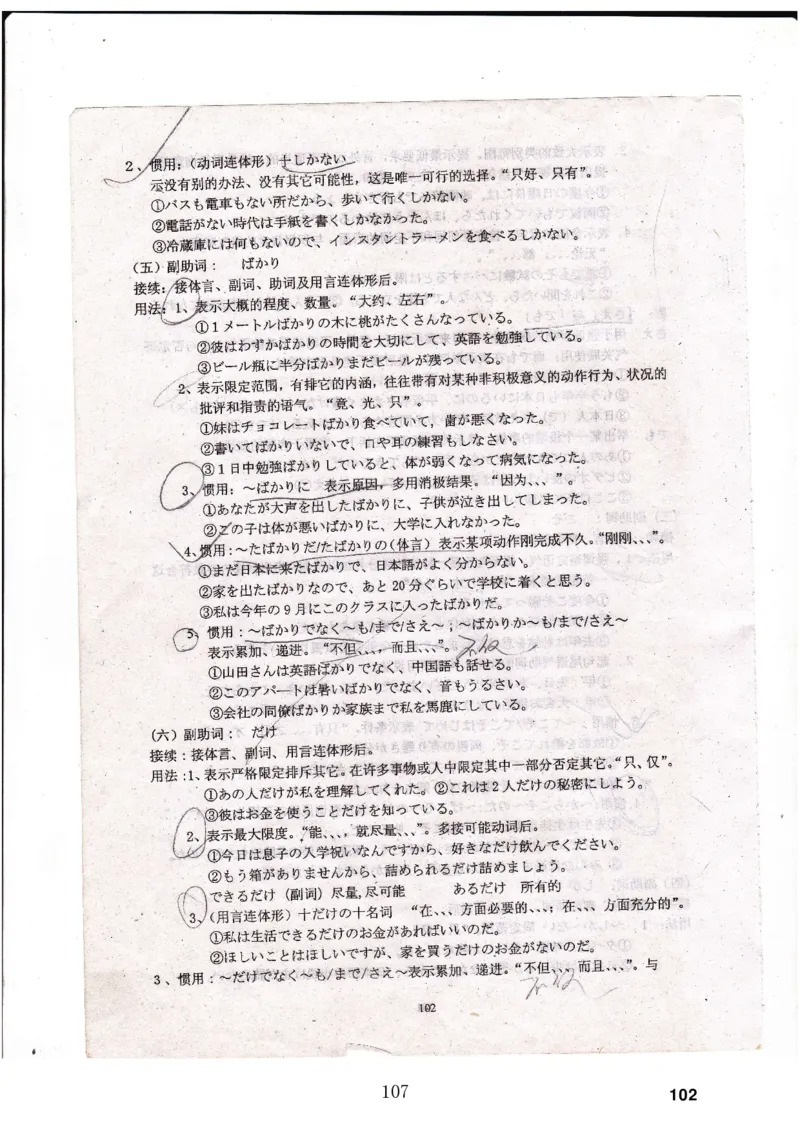 2、惯用：（动词连体形）十しかない
示没有别的办法、没有其它可能性，这是唯一可行的选择。“只好、只有”。
①バスも電車もない所だから、歩いて行くしかない。
②電話がない時代は手紙を書くしかなかった。
③冷蔵庫には何もないので、インスタントラーメンを食べるしかない。
（五）副助词： ばかり
接续：接体言、副词、助词及用言连体形后。
用法：1、表示大概的程度、数量。“大约、左右”。
①1メートルばかりの木に桃がたくさんなっている。
②彼はわずかばかりの時間を大切にして、英語を勉強している。
③ビール瓶に半分ばかりまだビールが残っている。
2、表示限定范围，有排它的内涵，往往带有对某种非积极意义的动作行为、状况的
批评和指责的语气。“竟、光、只”。
①妹はチョコレートばかり食べていて，歯が悪くなった。
②書いてばかりいないで、口や耳の練習もしなさい。
③1日中勉強ばかりしていると、体が弱くなって病気になった。
3、惯用：～ばかりに 表示原因，多用消极结果。“因为、、、”。
①あなたが大声を出したばかりに、子供が泣き出してしまった。
②この子は体が悪いばかりに、大学に入れなかった。
4、惯用：～たばかりだ/たばかりの（体言）表示某项动作刚完成不久。“刚刚、、、”。
①まだ日本に来たばかりで、日本語がよく分からない。
②家を出たばかりなので、あと20分ぐらいで学校に着くと思う。
③私は今年の9月にこのクラスに入ったばかりだ。
5、惯用：～ばかりでなく～も/まで/さえ～；～ばかりか～も/まで/さえ～
表示累加、递进。“不但、、、，而且、、、”。
①山田さんは英語ばかりでなく、中国語も話せる。
②このアパートは暑いばかりでなく、音もうるさい。
③会社の同僚ばかりか家族まで私を馬鹿にしている。
（六）副助词： だけ
接续：接体言、副词、用言连体形后。
用法：1、表示严格限定排斥其它。在许多事物或人中限定其中一部分否定其它。“只、仅”。
①あの人だけが私を理解してくれた。②これは2人だけの秘密にしよう。
③彼はお金を使うことだけを知っている。
2、表示最大限度。“能、、、，就尽量、、、”。多接可能动词后。
①今日は息子の入学祝いなんですから、好きなだけ飲んでください。
②もう箱がありませんから、詰められるだけ詰めましょう。
できるだけ（副词）尽量,尽可能 あるだけ 所有的
3、（用言连体形）十だけの十名词 “在、、、方面必要的、、、；在、、、方面充分的”。
①私は生活できるだけのお金があればいいのだ。
②ほしいことはほしいですが、家を買うだけのお金がないのだ。
3、惯用：～だけでなく～も/まで/さえ～表示累加、递进。“不但、、、而且、、、”。与
102
107
102